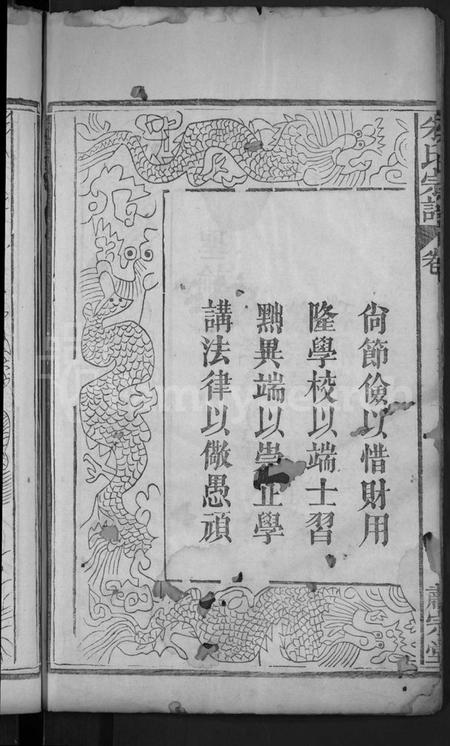 尙節儉以惜財用
隆學校以端士習
黜異端以崇正學
講法律以儆愚頑
氏宗譜
卷
肅宗堂